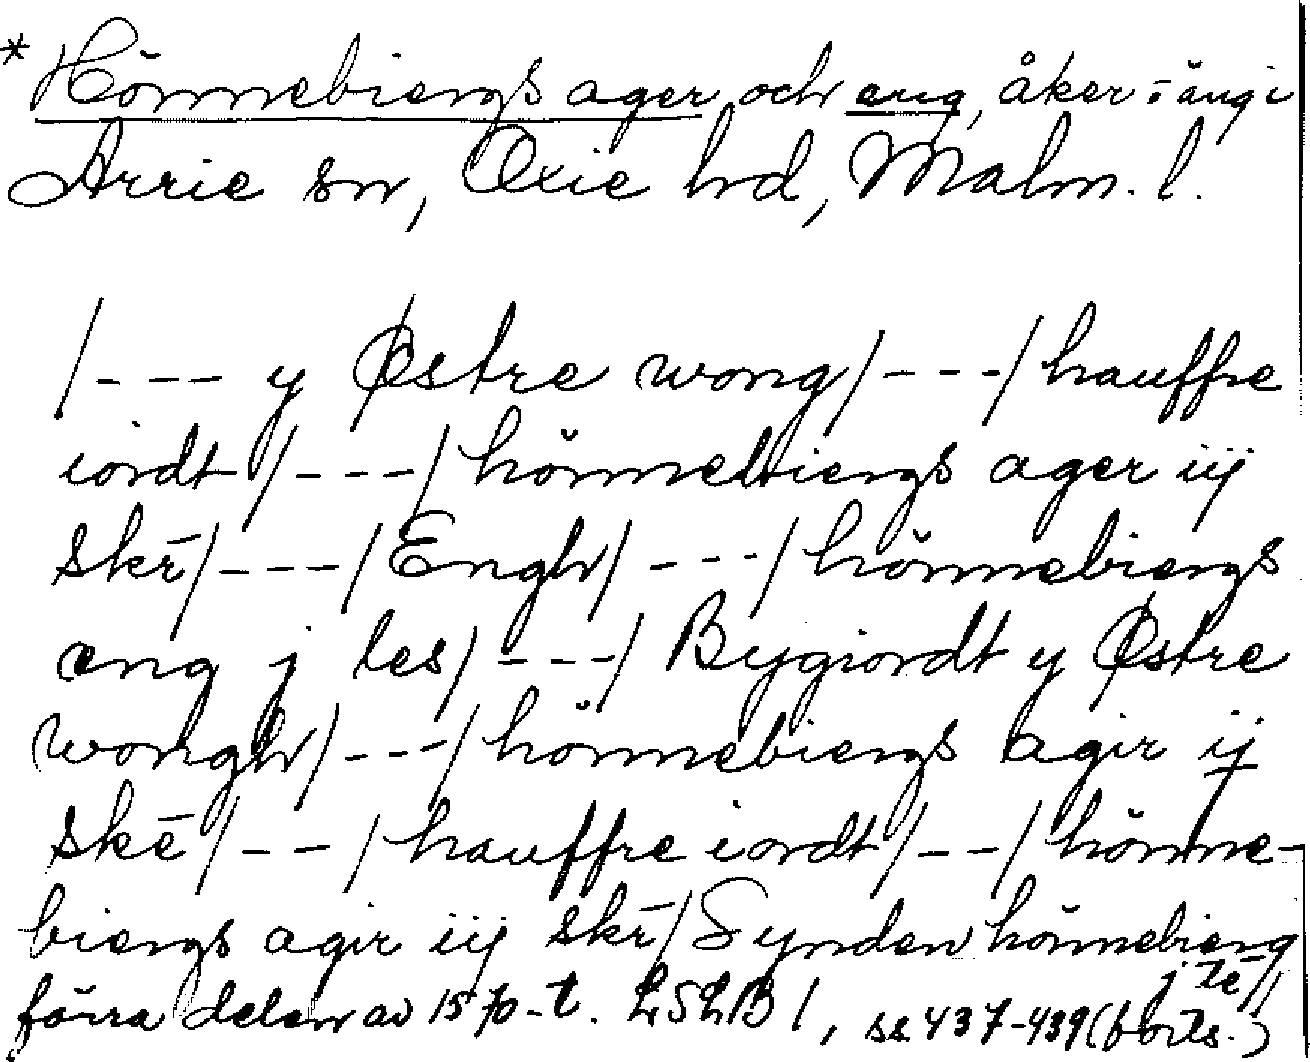 * Hönnebiergs ager och eng, åker o. äng i
Arrie sn, Oxie hd, Malm. l.
/--- y Østre wong/---/hauffre
iordt/---/hönnebiergs ager iij
skē/---/Engh/---/hönnebiergs
eng j les/---/Bygiordt y Østre
wongh/---/hönnebiergs agir ij
skē/--/hauffre iordt/--/hönne-
biergs agir iij skē/Synden hönnebierg
j lē//
förra delen av 1570-t. LSLB 1, ss 437-439 (forts.)